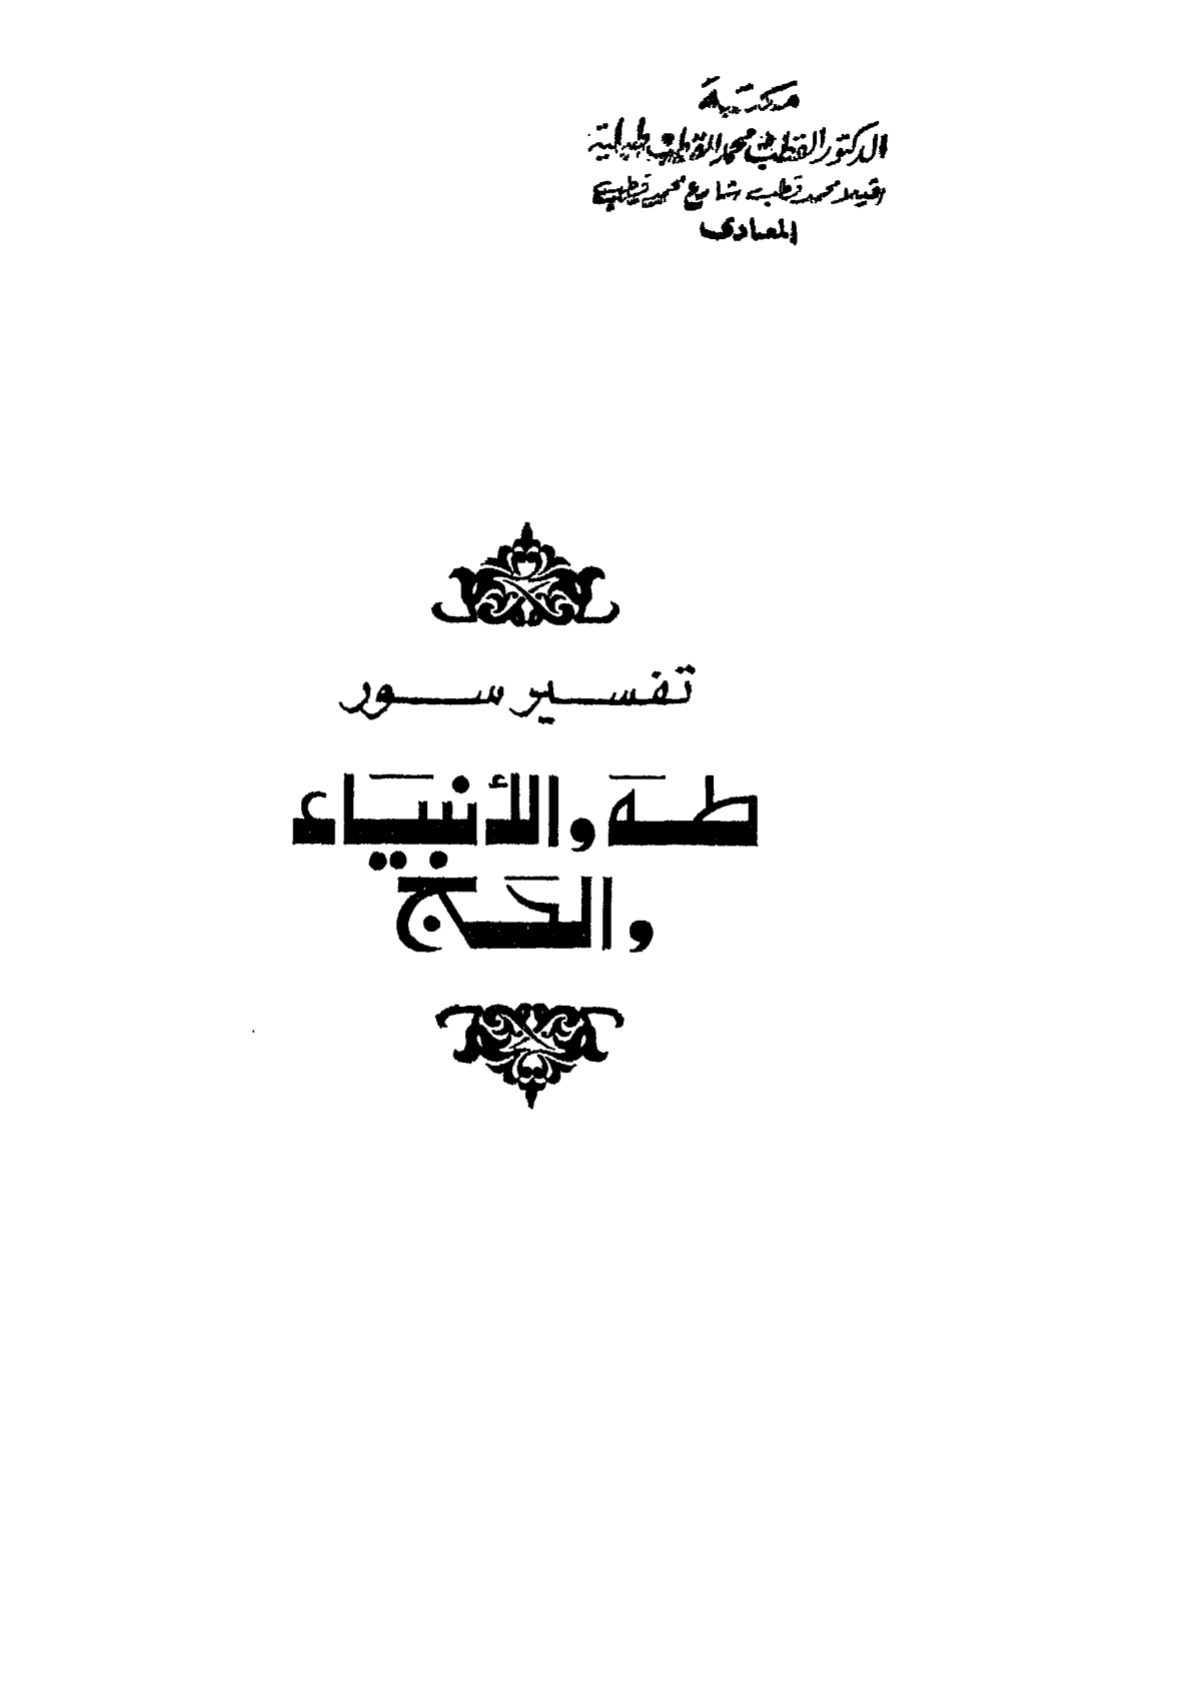 مكتبة
الدكتور القطب محمد القطب طبلية
فيلا محمد قطب شارع محمد قطب
المعادى
تفسير سور
طه والأنبياء
والحج